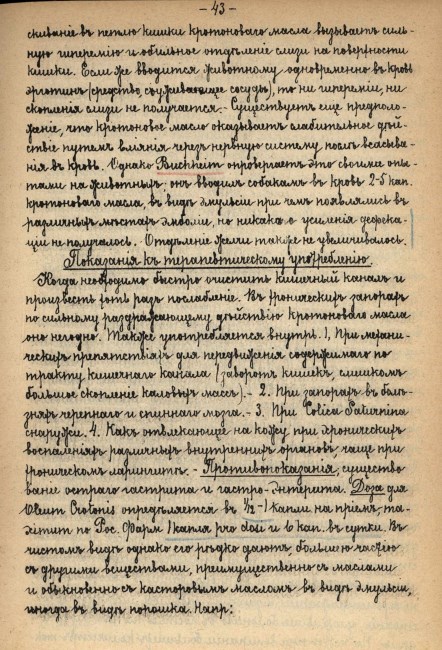 - 43 -
скиваніе въ петлю кишки кротоноваго масла вызываетъ силь-
ную гиперемію и обильное отдѣленіе слизи на поверхности
кишки. Если же вводится животному одновременно въ кровь
эрготинъ (средство, суживающее сосуды), то ни гипереміи, ни
скопленія слизи не получается. - Существуетъ еще предполо-
женіе, что кротоновое масло оказываетъ слабительное дѣй-
ствіе путемъ вліянія черезъ нервную систему, послѣ всасыва-
нія въ кровь. Однако Buchheim опровергаетъ это своими опы-
тами на животныхъ; онъ вводилъ собакамъ въ кровь 2-5 кап.
кротоноваго масла, въ видѣ эмульсіи при чемъ появлялись въ
различныхъ мѣстахъ эмболіи, но никакого усиленія дефека-
ціи не получалось. Отдѣленіе желчи также не увеличивалось.
Показанія къ терапевтическому употребленію.
Когда необходимо быстро очистить кишечный каналъ и
произвесть разъ послабленіе. Въ хроническихъ запорахъ
по сильному раздражающему дѣйствію кротоноваго масла
оно негодно. Также употребляется внутрь. 1, При механи-
ческихъ препятствіяхъ для передвиженія содержимаго по
тракту кишечнаго канала (заворотъ кишекъ, слишкомъ
большое скопленіе каловыхъ массъ). - 2. При запорахъ въ болѣ-
зняхъ черепнаго и спиннаго мозга. - 3. При Colica Saturnina
снаружи. 4. Какъ отвлекающее на кожу при хроническихъ
воспаленіяхъ различныхъ внутреннихъ органовъ, чаще при
хроническомъ ларингитѣ. - Противопоказанія, существо
ваніе остраго гастрита и гастро-энтерита. Доза для
Oleum Crotonis опредѣляется въ 1/2-1 капли на пріемъ, ma-
ximum по Рос. Фарм 1 капля pro dosi и 6 кап. въ сутки. Въ
чистомъ видѣ однако его рѣдко даютъ, большею частію
съ другими веществами, преимущественно съ маслами
и обыкновенно съ касторовымъ масломъ въ видѣ эмульсіи,
иногда въ видѣ порошка. Напр: